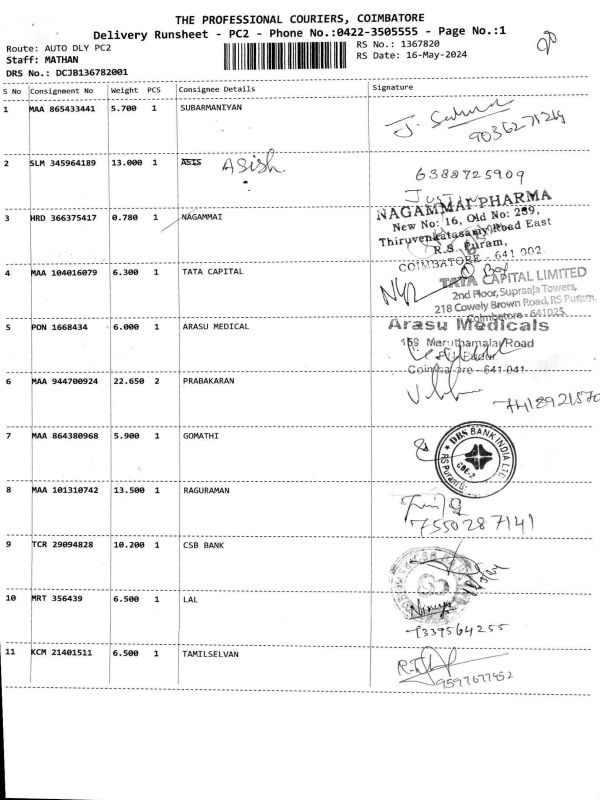 THE PROFESSIONAL COURIERS, COIMBATORE
Delivery Runsheet - PC2 - Phone No.:0422-3505555 - Page No.:1
Route: AUTO DLY PC2
Staff: MATHAN
DRS No.: DCJB136782001
RS No.: 1367820
RS Date: 16-May-2024
S No Consignment No Weight PCS Consignee Details Signature
1 MAA 865433441 5.700 1 SUBARMANIYAN
9036271219
2 SLM 345964189 13.000 1 ASIS Asish
6388725909
3 HRD 366375417 0.780 1 NAGAMMAI
NAGAMMAI PHARMA
New No: 16, Old No: 259,
Thiruvenkatasamy Road East
R.S. Puram,
COIMBATORE - 641 002
4 MAA 104016079 6.300 1 TATA CAPITAL
TATA CAPITAL LIMITED
2nd Floor, Supraaja Towers,
218 Cowely Brown Road, RS Puram,
Coimbatore - 641025
5 PON 1668434 6.000 1 ARASU MEDICAL
Arasu Medicals
159 Maruthamalai Road
Coimbatore - 641 041
6 MAA 944700924 22.650 2 PRABAKARAN
7418921570
7 MAA 864380968 5.900 1 GOMATHI
DBS BANK INDIA LTD
CBE-2
8 MAA 101310742 13.500 1 RAGURAMAN
7550287141
9 TCR 29094828 10.200 1 CSB BANK
10 MRT 356439 6.500 1 LAL
7339564255
11 KCM 21401511 6.500 1 TAMILSELVAN
9597677452